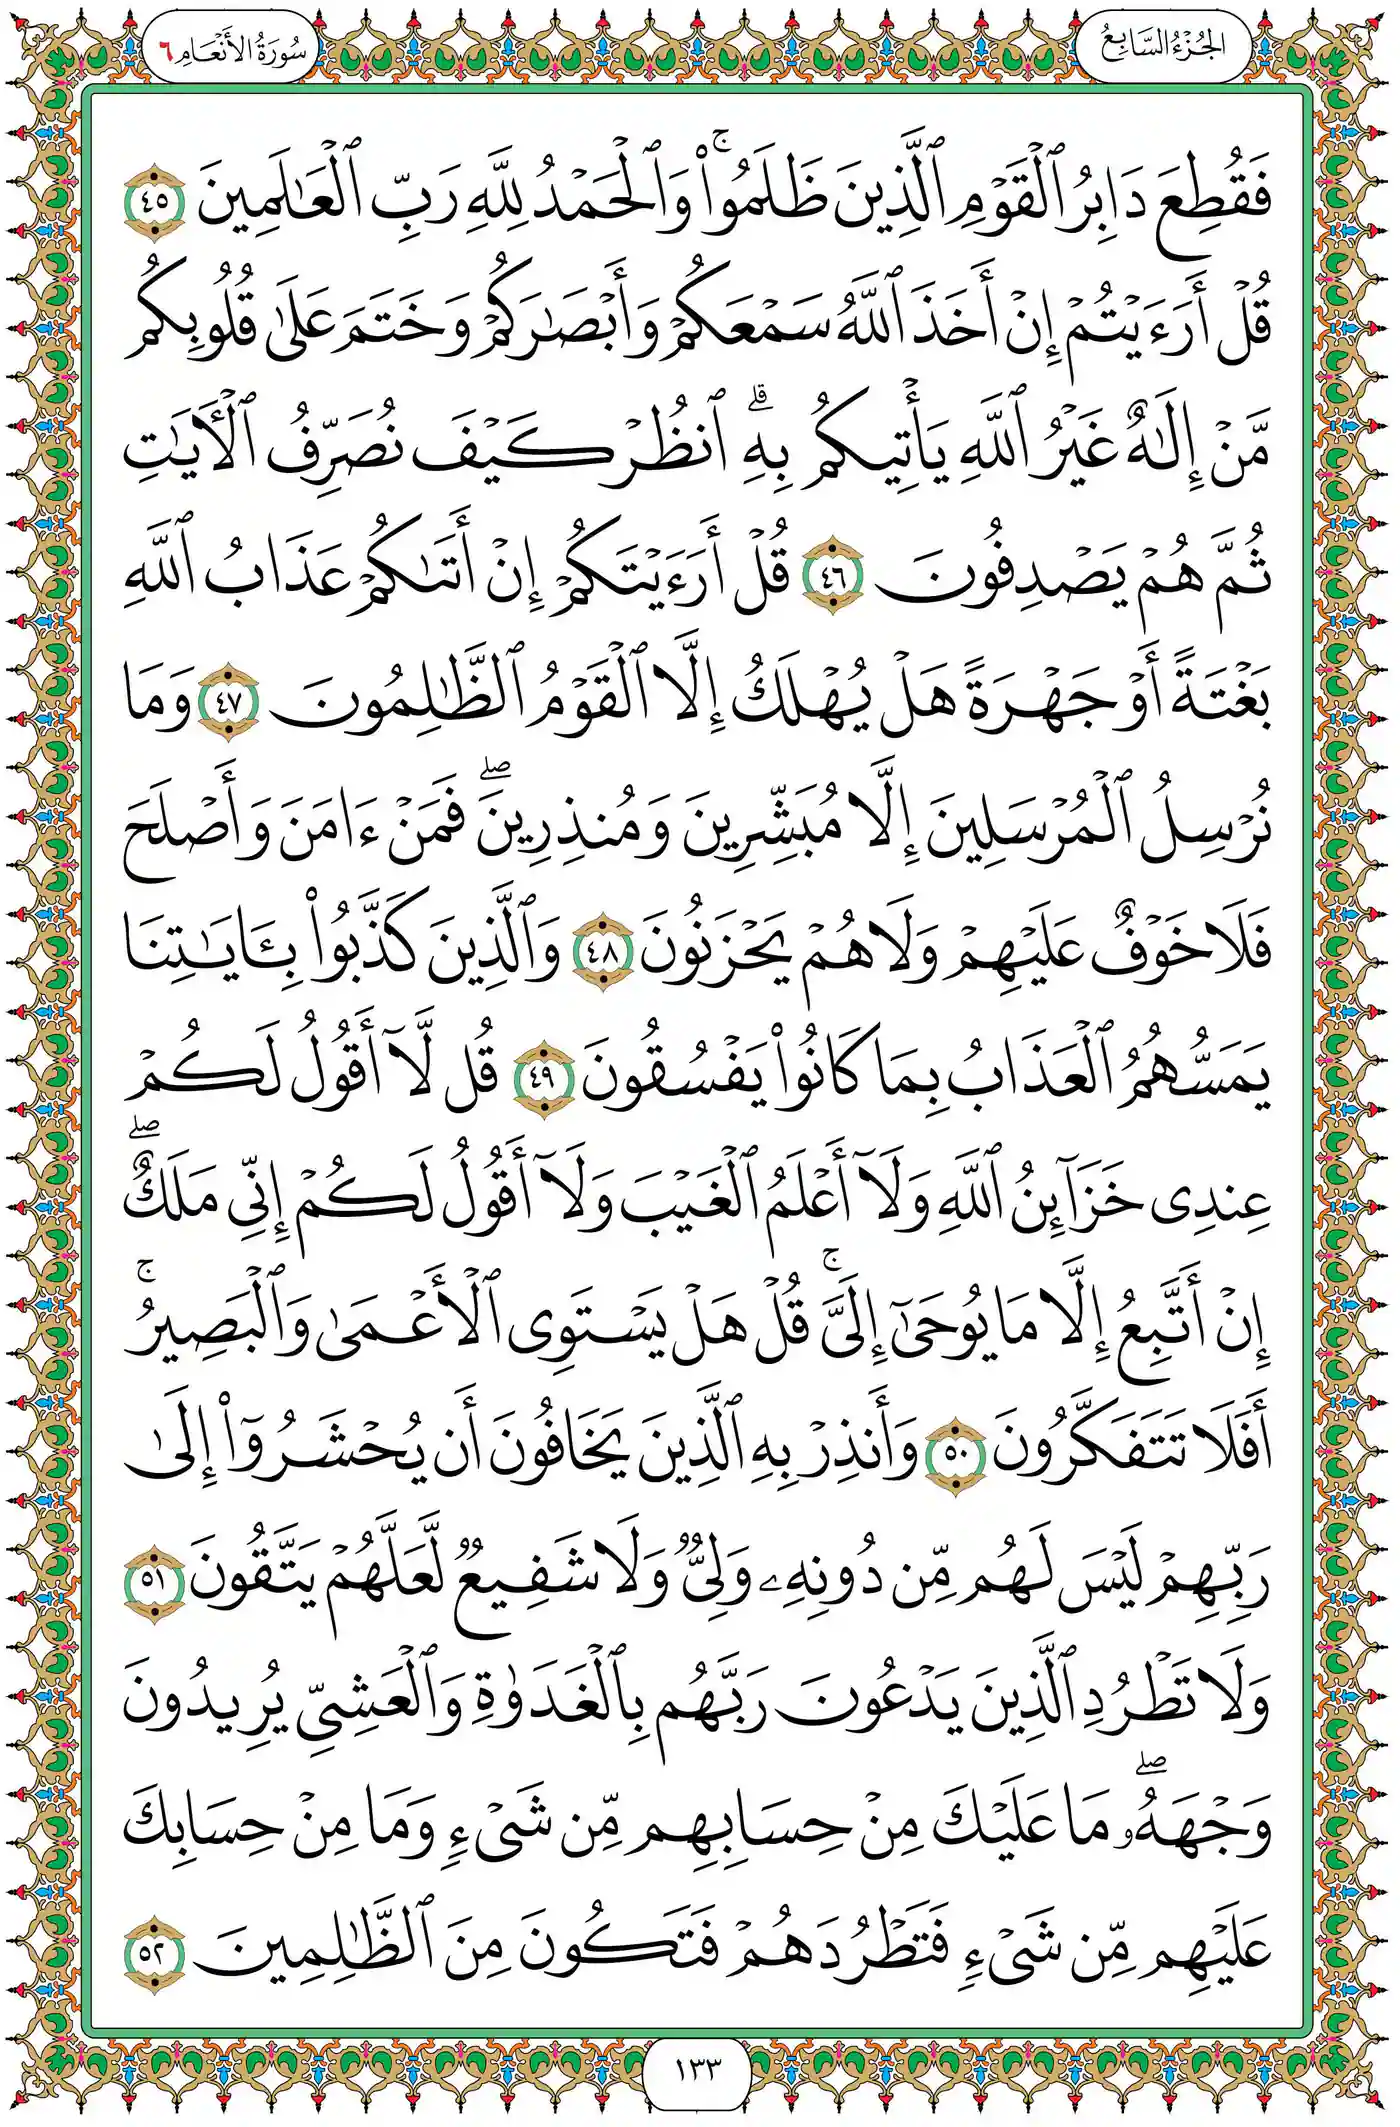 الجُزْءُ السَّابِعُ
سُورَةُ الأَنْعَامِ ٦
فَقُطِعَ دَابِرُ ٱلْقَوْمِ ٱلَّذِينَ ظَلَمُوا۟ ۚ وَٱلْحَمْدُ لِلَّهِ رَبِّ ٱلْعَـٰلَمِينَ ٤٥
قُلْ أَرَءَيْتُمْ إِنْ أَخَذَ ٱللَّهُ سَمْعَكُمْ وَأَبْصَـٰرَكُمْ وَخَتَمَ عَلَىٰ قُلُوبِكُم
مَّنْ إِلَـٰهٌ غَيْرُ ٱللَّهِ يَأْتِيكُم بِهِ ۗ ٱنظُرْ كَيْفَ نُصَرِّفُ ٱلْـَٔايَـٰتِ
ثُمَّ هُمْ يَصْدِفُونَ ٤٦ قُلْ أَرَءَيْتَكُمْ إِنْ أَتَىٰكُمْ عَذَابُ ٱللَّهِ
بَغْتَةً أَوْ جَهْرَةً هَلْ يُهْلَكُ إِلَّا ٱلْقَوْمُ ٱلظَّـٰلِمُونَ ٤٧ وَمَا
نُرْسِلُ ٱلْمُرْسَلِينَ إِلَّا مُبَشِّرِينَ وَمُنذِرِينَ ۖ فَمَنْ ءَامَنَ وَأَصْلَحَ
فَلَا خَوْفٌ عَلَيْهِمْ وَلَا هُمْ يَحْزَنُونَ ٤٨ وَٱلَّذِينَ كَذَّبُوا۟ بِـَٔايَـٰتِنَا
يَمَسُّهُمُ ٱلْعَذَابُ بِمَا كَانُوا۟ يَفْسُقُونَ ٤٩ قُل لَّآ أَقُولُ لَكُمْ
عِندِى خَزَآئِنُ ٱللَّهِ وَلَآ أَعْلَمُ ٱلْغَيْبَ وَلَآ أَقُولُ لَكُمْ إِنِّى مَلَكٌ ۖ
إِنْ أَتَّبِعُ إِلَّا مَا يُوحَىٰٓ إِلَىَّ ۚ قُلْ هَلْ يَسْتَوِى ٱلْأَعْمَىٰ وَٱلْبَصِيرُ ۚ
أَفَلَا تَتَفَكَّرُونَ ٥٠ وَأَنذِرْ بِهِ ٱلَّذِينَ يَخَافُونَ أَن يُحْشَرُوٓا۟ إِلَىٰ
رَبِّهِمْ لَيْسَ لَهُم مِّن دُونِهِۦ وَلِىٌّ وَلَا شَفِيعٌ لَّعَلَّهُمْ يَتَّقُونَ ٥١
وَلَا تَطْرُدِ ٱلَّذِينَ يَدْعُونَ رَبَّهُم بِٱلْغَدَوٰةِ وَٱلْعَشِىِّ يُرِيدُونَ
وَجْهَهُۥ ۖ مَا عَلَيْكَ مِنْ حِسَابِهِم مِّن شَىْءٍ وَمَا مِنْ حِسَابِكَ
عَلَيْهِم مِّن شَىْءٍ فَتَطْرُدَهُمْ فَتَكُونَ مِنَ ٱلظَّـٰلِمِينَ ٥٢
١٣٣